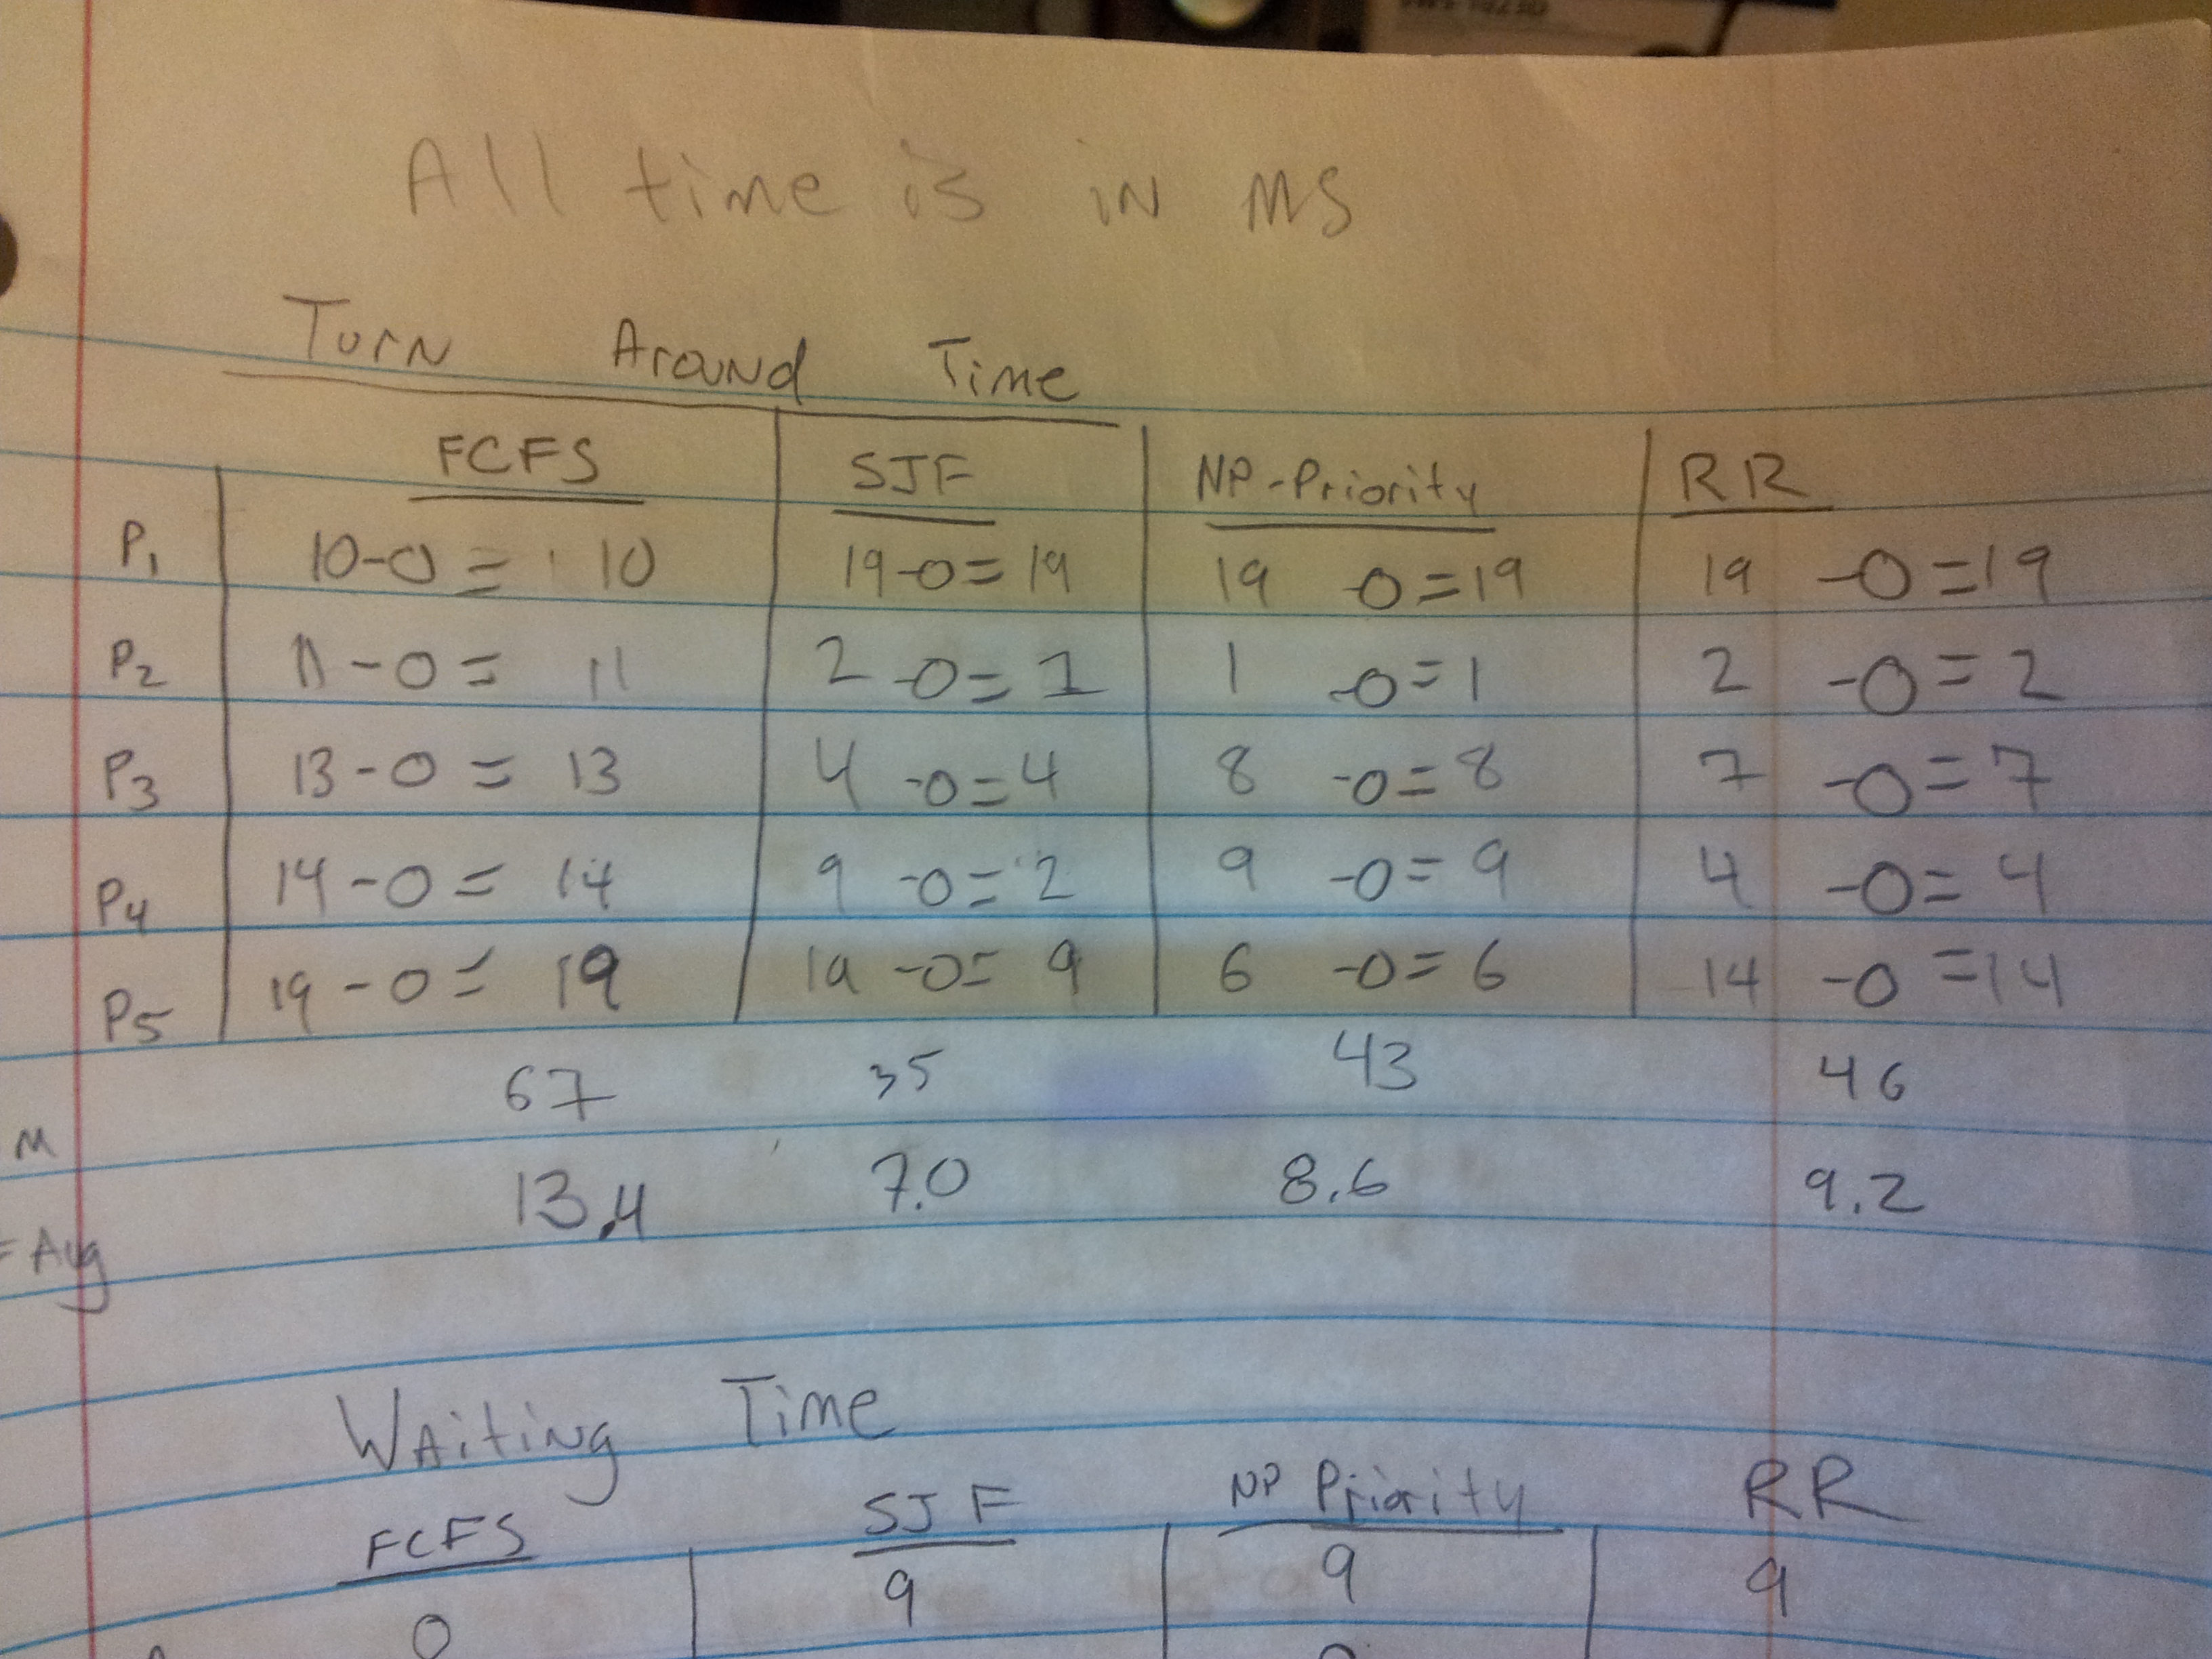 All time is in ms
Turn Around Time
FCFS SJF NP-Priority RR
P1 10-0= 10 19-0=19 19 -0=19 19 -0=19
P2 11-0= 11 2 -0=1 1 -0=1 2 -0=2
P3 13-0= 13 4 -0=4 8 -0=8 7 -0=7
P4 14-0= 14 9 -0=2 9 -0=9 4 -0=4
P5 19-0= 19 19 -0= 9 6 -0=6 14 -0=14
67 35 43 46
M
13.4 7.0 8.6 9.2
= Avg
Waiting Time
FCFS SJF NP Priority RR
0 9 9 9